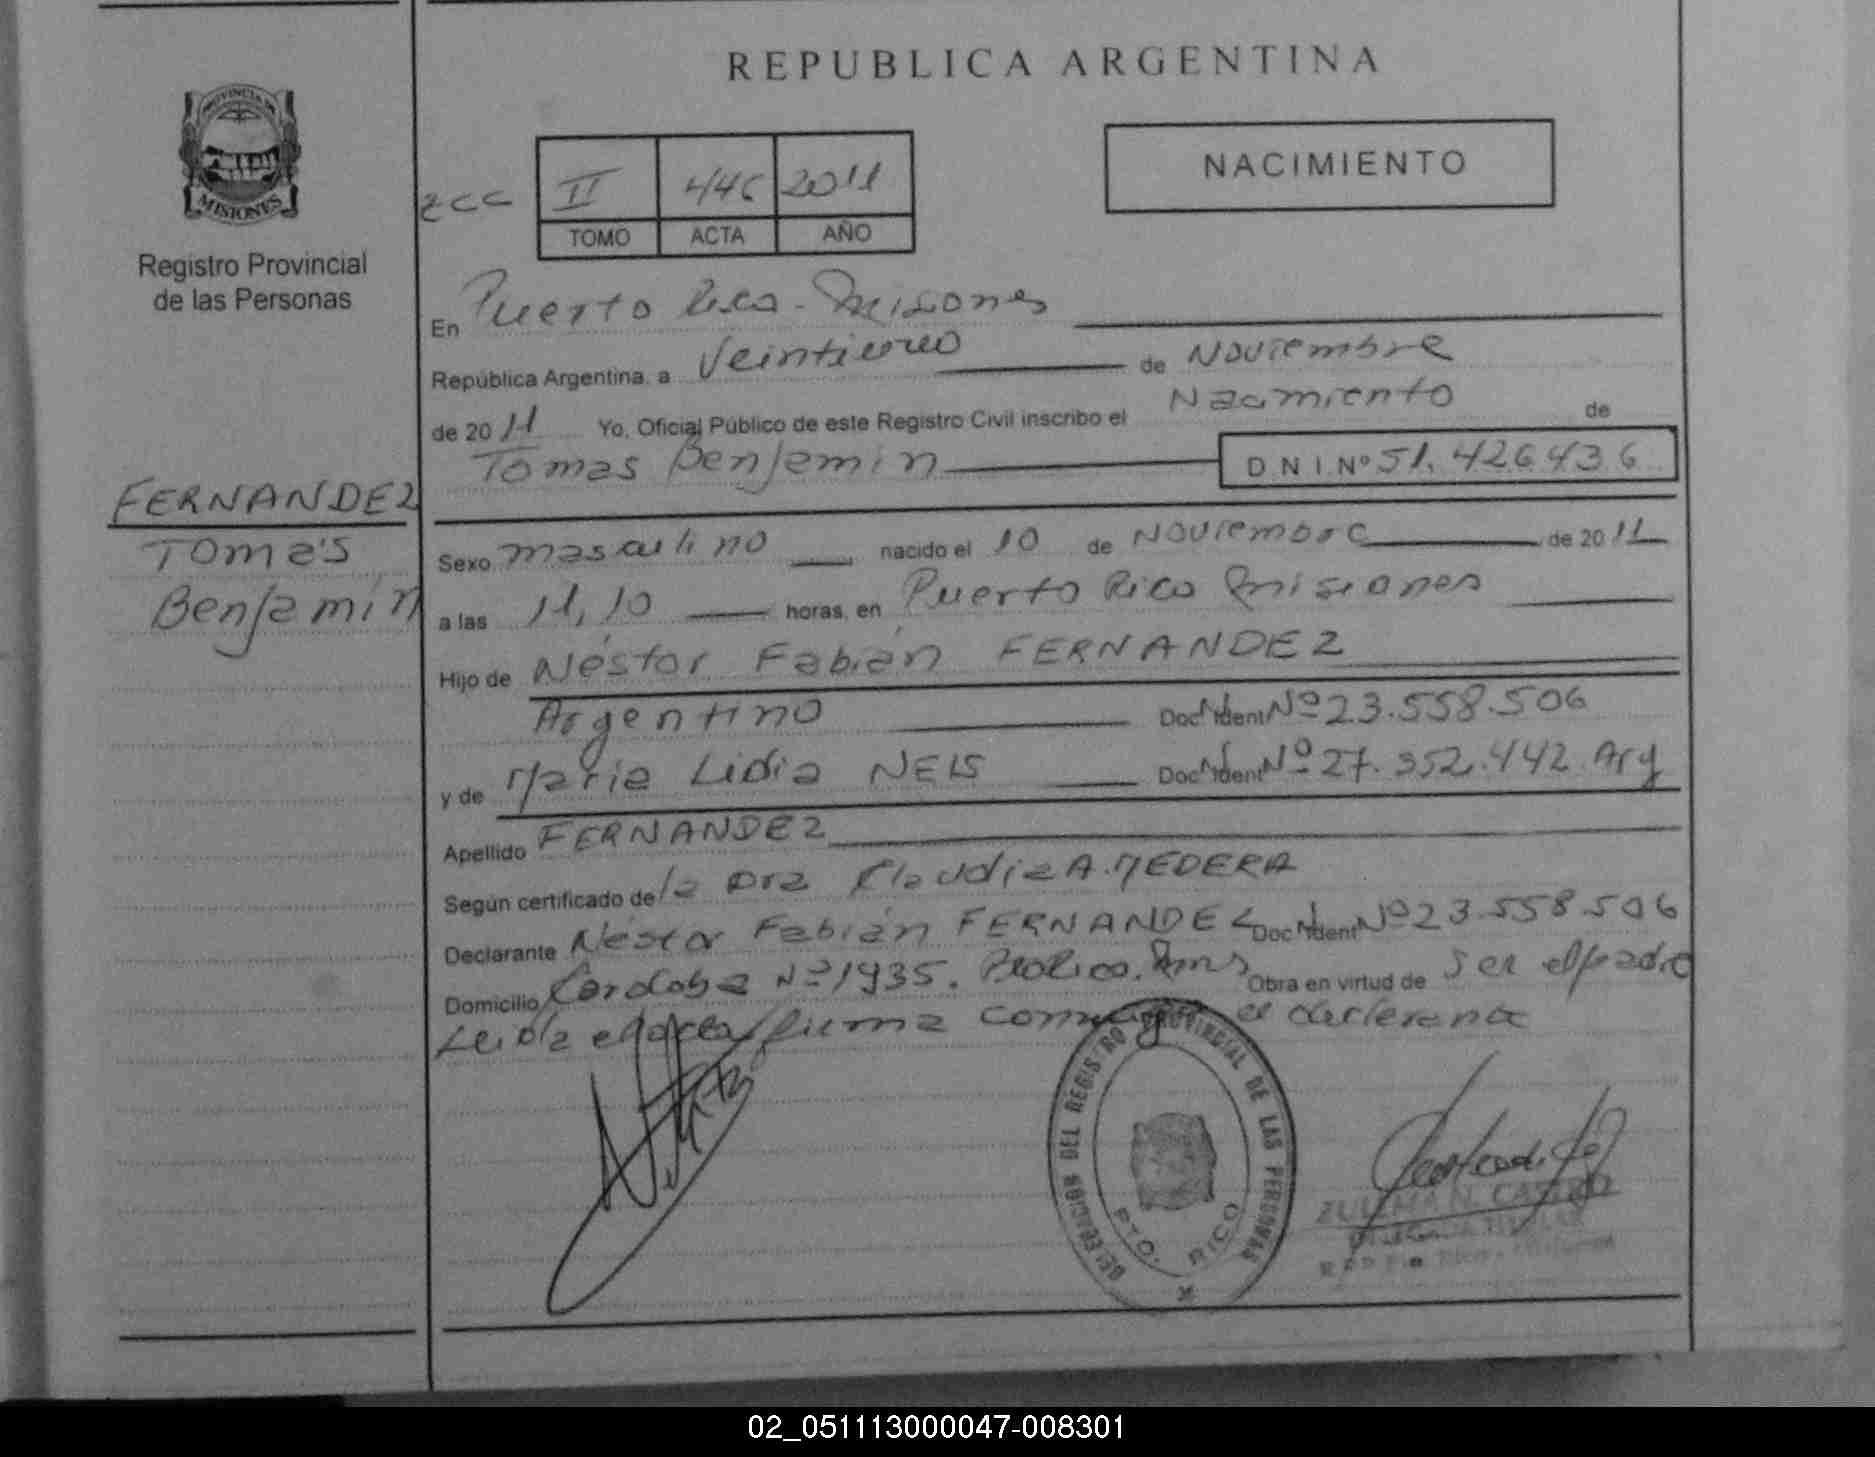 REPUBLICA ARGENTINA
PROVINCIA DE
MISIONES
Registro Provincial
de las Personas
NACIMIENTO
II 446 2011
TOMO ACTA AÑO
En Puerto Rico - Misiones
República Argentina, a Veintiuno de Noviembre
de 2011 Yo, Oficial Público de este Registro Civil inscribo el Nacimiento de
Tomas Benjamin D N I. Nº 51.426436
FERNANDEZ
Tomás
Benjamin
Sexo masculino nacido el 10 de Noviembre de 2011
a las 11,10 horas, en Puerto Rico Misiones
Hijo de Néstor Fabián FERNANDEZ
Argentino Doc Ident Nº 23.558.506
y de Maria Lidia NEIS Doc Ident Nº 27.352.442 Arg
Apellido FERNANDEZ
Según certificado de la Dra Claudia A. MEDERA
Declarante Néstor Fabián FERNANDEZ Doc Ident Nº 23.558.506
Domicilio Cordoba Nº 1935. Obra en virtud de Ser el padre
Leida el acta firma conmigo el declarante
DELEGACION DEL REGISTRO PROVINCIAL DE LAS PERSONAS
PTO. RICO
ZULMA N. CASTRO
02_051113000047-008301